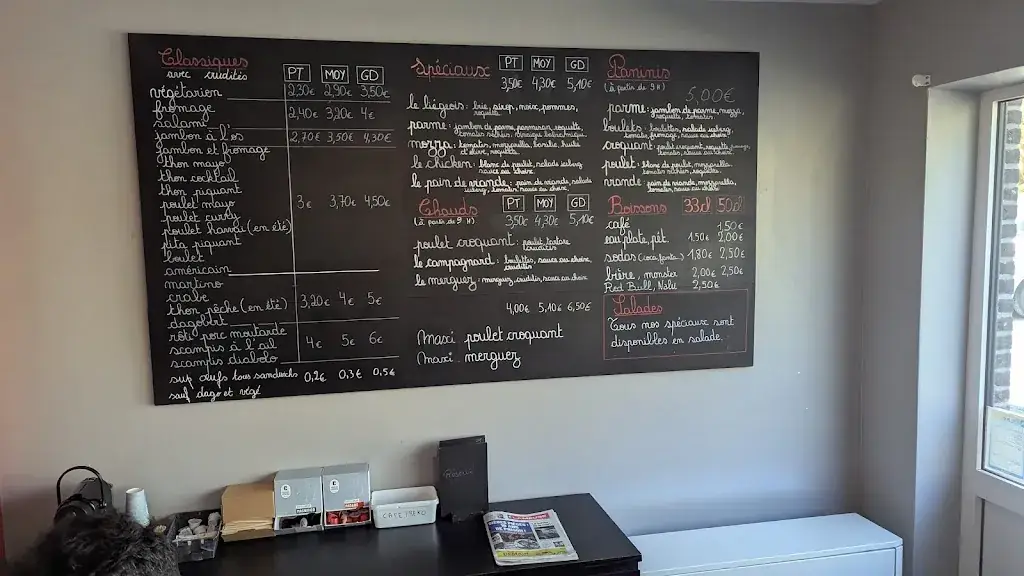 Classiques
avec crudités
PT MOY GD
végétarien 2,30€ 2,90€ 3,50€
fromage
salami 2,40€ 3,20€ 4€
jambon à l'os 2,70€ 3,50€ 4,30€
jambon et fromage
thon mayo
thon cocktail
thon piquant
poulet mayo 3€ 3,70€ 4,50€
poulet curry
poulet hawaï (en été)
pita piquant
boulet
américain
martino
crabe
thon pêche (en été) 3,20€ 4€ 5€
dagobert
rôti porc moutarde
scampis à l'ail 4€ 5€ 6€
scampis diabolo
sup œufs tous sandwichs 0,2€ 0,3€ 0,5€
sauf dago et végé
Spéciaux PT MOY GD
3,50€ 4,30€ 5,10€
le liégeois: brie, sirop, noix, pommes,
roquette
parme: jambon de parme, parmesan, roquette,
tomates séchées, vinaigre balsamique
mozza: tomates, mozzarella, basilic, huile
d'olive, roquette
le chicken: blanc de poulet, salade iceberg
sauce au choix
le pain de viande: pain de viande, salade
iceberg, tomates, sauce au choix
Chauds PT MOY GD
(à partir de 9 H) 3,50€ 4,30€ 5,10€
poulet croquant: poulet, tartare
crudités
le campagnard: boulettes, sauce au choix,
crudités
le merguez: merguez, crudités, sauce au choix
4,00€ 5,10€ 6,50€
Maxi poulet croquant
Maxi merguez
Paninis
(à partir de 9H)
5,00€
parme: jambon de parme, mozza,
roquette, tomates
boulets: boulettes, salade iceberg,
tomates, fromage, sauce au choix
croquant: poulet croquant, roquette,
tomates, sauce au choix
poulet: blanc de poulet, mozzarella
tomates séchées, roquette
viande: pain de viande, mozzarella,
tomates, sauce au choix
Boissons 33cl 50cl
café 1,50€
eau plate, pét. 1,50€ 2,00€
sodas (coca, fanta...) 1,80€ 2,50€
bière, monster 2,00€ 2,50€
Red Bull, Nalu 2,50€
Salades
Tous nos spéciaux sont
disponibles en salade.